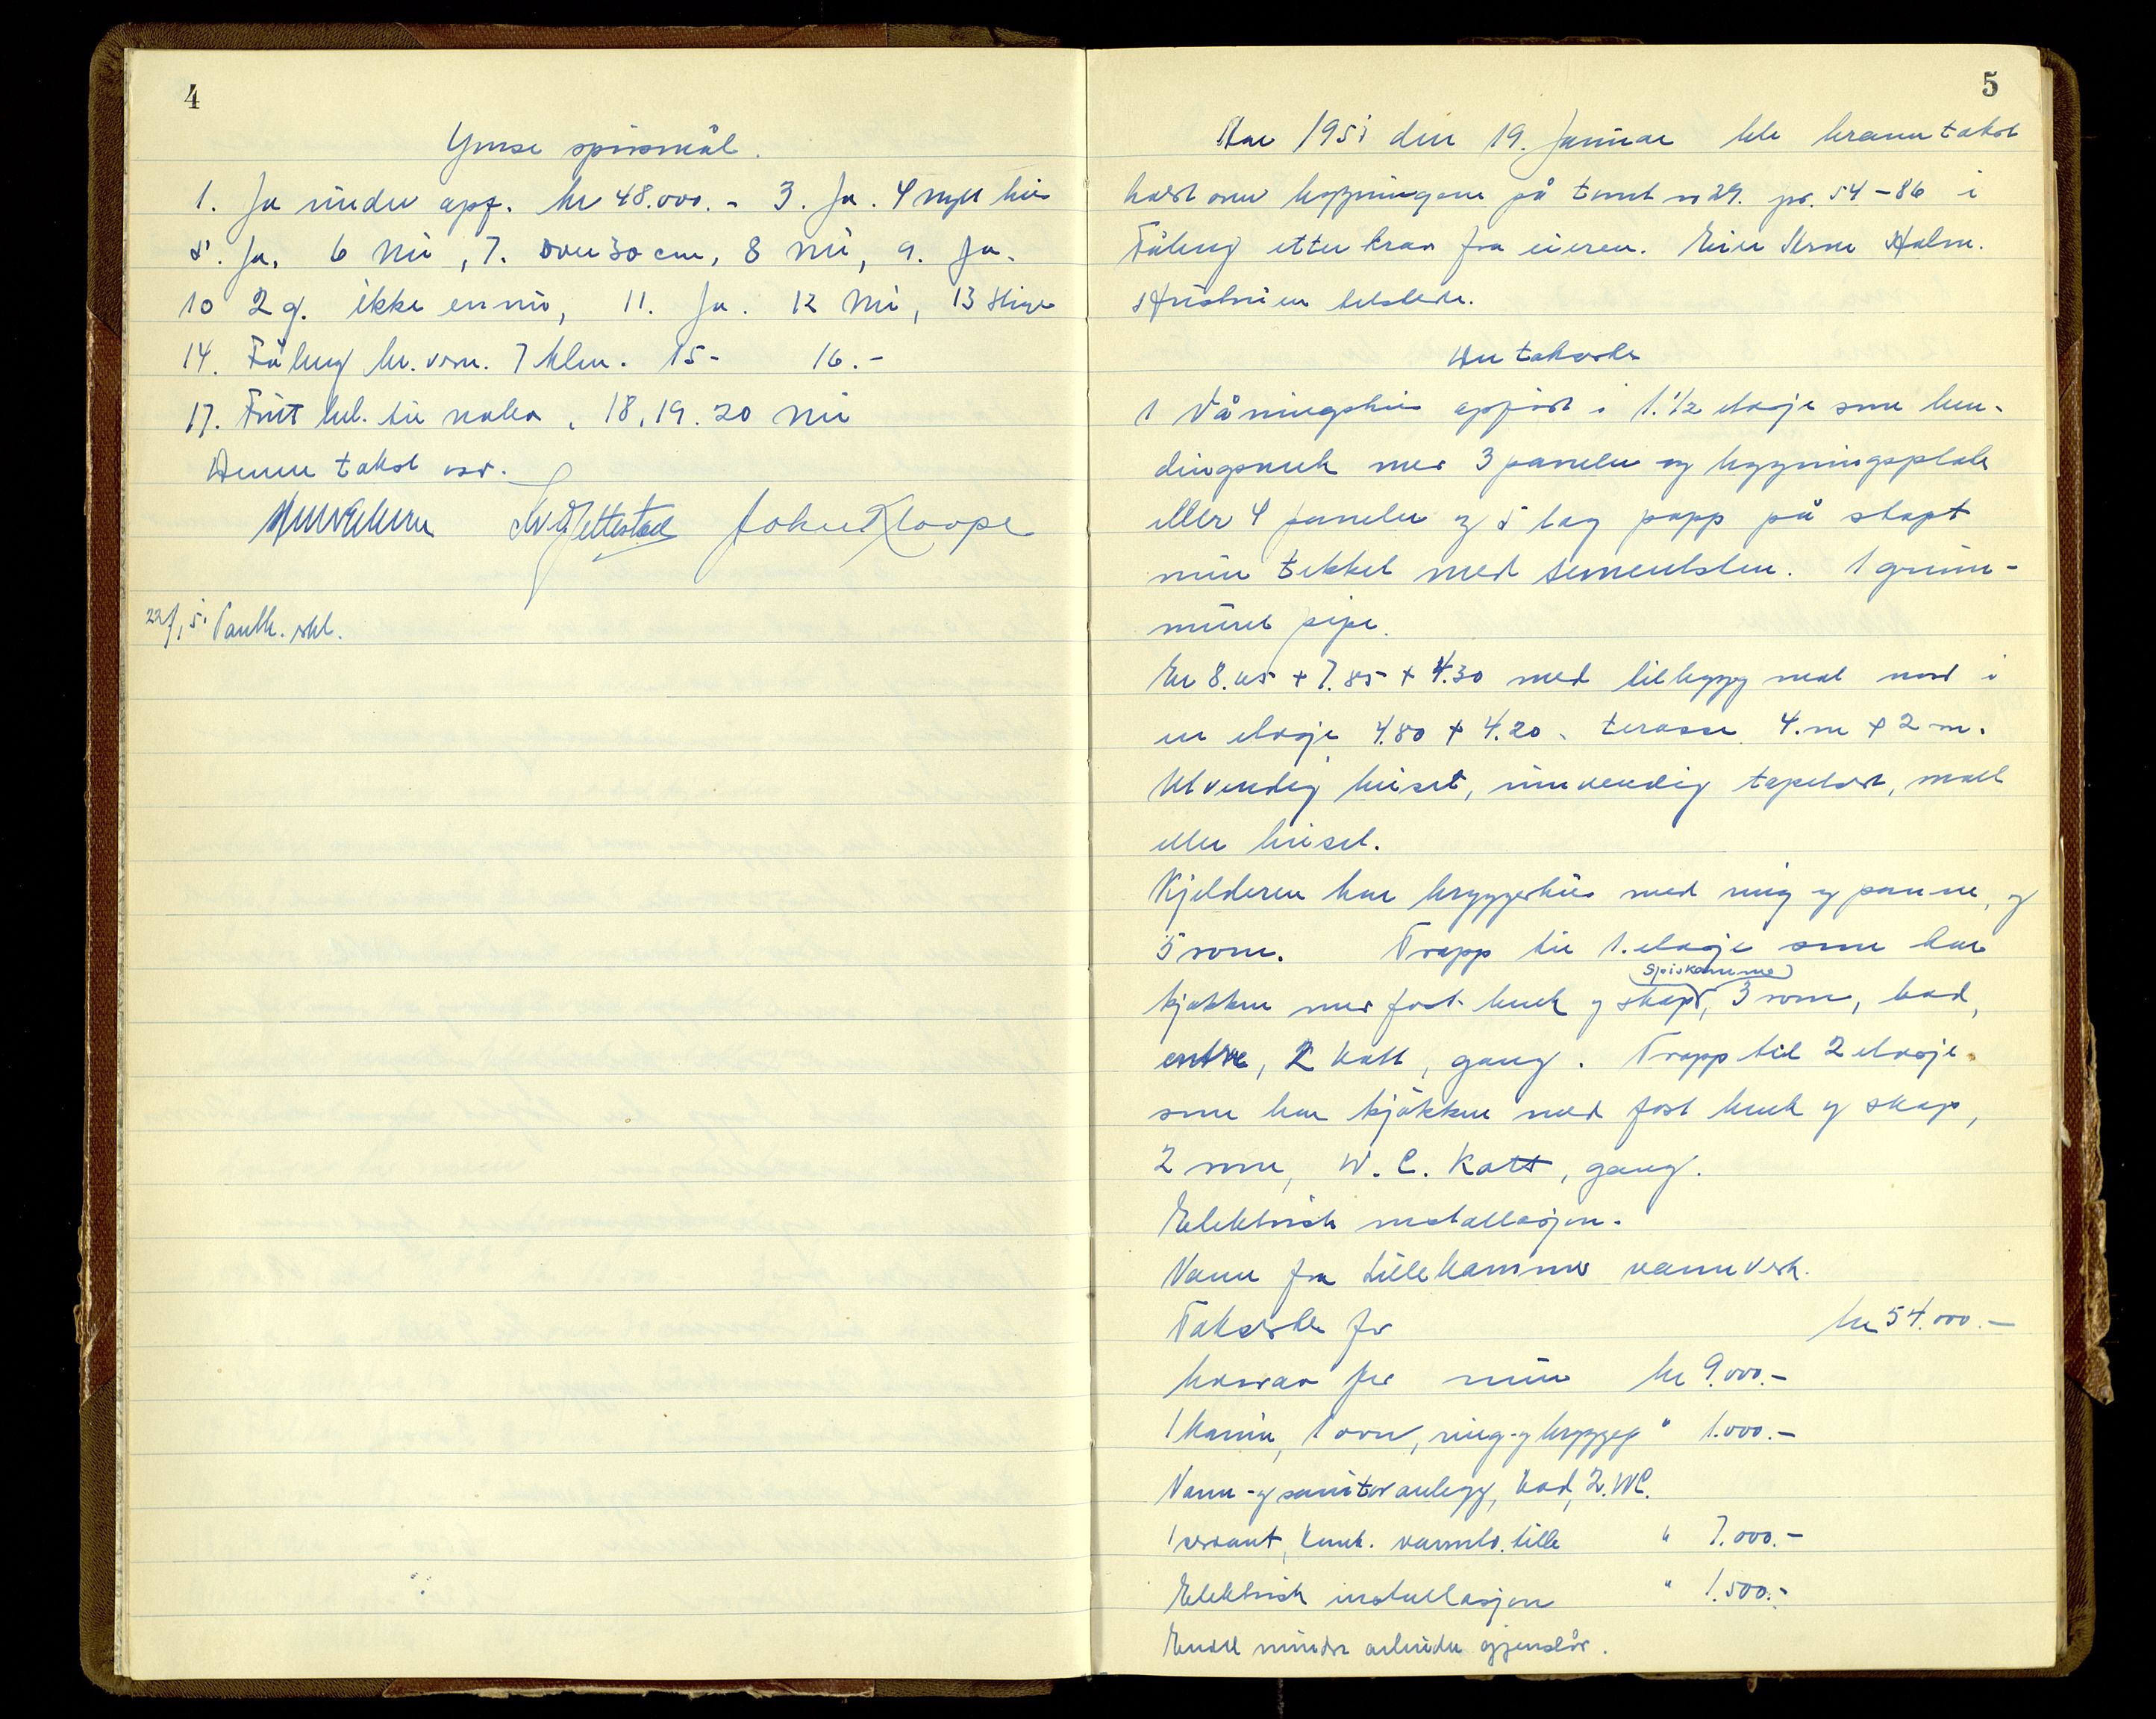 4
Ymse spörsmål.
1. Ja under opf. kr 48.000.- 3. Ja. 4 nytt hus
5. Ja, 6 Nei, 7. over 30 cm, 8 Nei, 9. Ja.
10 2 g. ikke ennu, 11. Ja. 12 Nei, 13 Stige
14. Fåberg br. vesn. 7 klm. 15- 16.-
17. Fritt bel. til nabo, 18, 19. 20 Nei
Denne takst vedr.
John Kloape
22/1 51 Panth. skl.
5
Aar 1951 den 19. Januar ble branntakst
holdt over bygningene på tomt no 29. pr. 54-86 i
Fåberg etter krav fra eieren. Arne Holm.
Hustruen tilstede.
Det takserte
1 Våningshus oppført i 1.1/2 etasje som bin-
dingsverk med 3 paneler og bygningsplate
eller 4 paneler og 5 lag papp på støpt
mur tekket med sementsten. 1 grunn-
muret pipe.
Er 8.65 + 7.85 + 4.30 med tilbygg mot nord i
en etasje 4.80 + 4.20. terasse 4.m + 2 m.
Utvendig beiset, innvendig tapetsert, malt
eller beiset.
Kjelderen har bryggerhus med ring og panne, og
5 rom. Trapp til 1. etasje som har
spiskammer
kjøkken med fast benk og skap, 3 rom, bad,
entre, 2 kott, gang. Trapp til 2 etasje
som har kjøkken med fast benk og skap,
2 rom, W.C. Kott, gang.
Elektrisk installasjon.
Vann fra Lillehammer vannverk.
Takseres for kr 54.000.-
hvorav for mur kr 9.000.-
1 kamin, 1 ovn, ring- og bryggep " 1.000.-
Vann- og sanitæranlegg, bad, 2. WC.
1 servant, benk. varmtv. tille " 7.000.-
Elektrisk installasjon " 1.500.-
Endel mindre arbeider gjenstår.